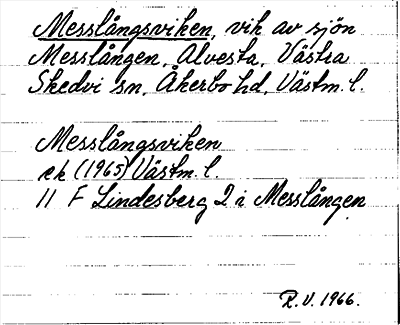 Messlångsviken, vik av sjön
Messlången, Alvesta, Västra
Skedvi sn, Åkerbo hd, Västm. l.
Messlångsviken
ek (1965) Västm. l.
11 F Lindesberg 2 i Messlången
R.V. 1966.